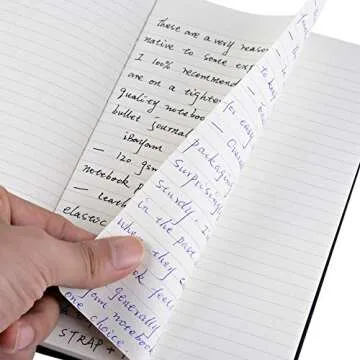 These are a very reason
native to some exp
I 100% recommend
are on a tighter
quality notebook
bullet journal
iBayam
— 120 gsm
notebook p
— leath
elastic
STRAP +
for easy
— Over
packaging
surprising
sturdy. I
in the past
when they
ok feel
generally
am notebook
one choice